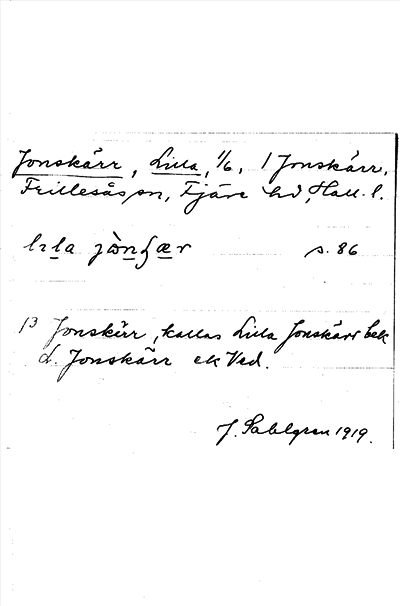 Jonskärr, Lilla, 1/6, i Jonskärr,
Frillesås sn, Fjäre hd, Hall. l.
s. 86
13 Jonskärr, kallas Lilla Jonskärr bek
L. Jonskärr ek Ved.
J. Sahlgren 1919.